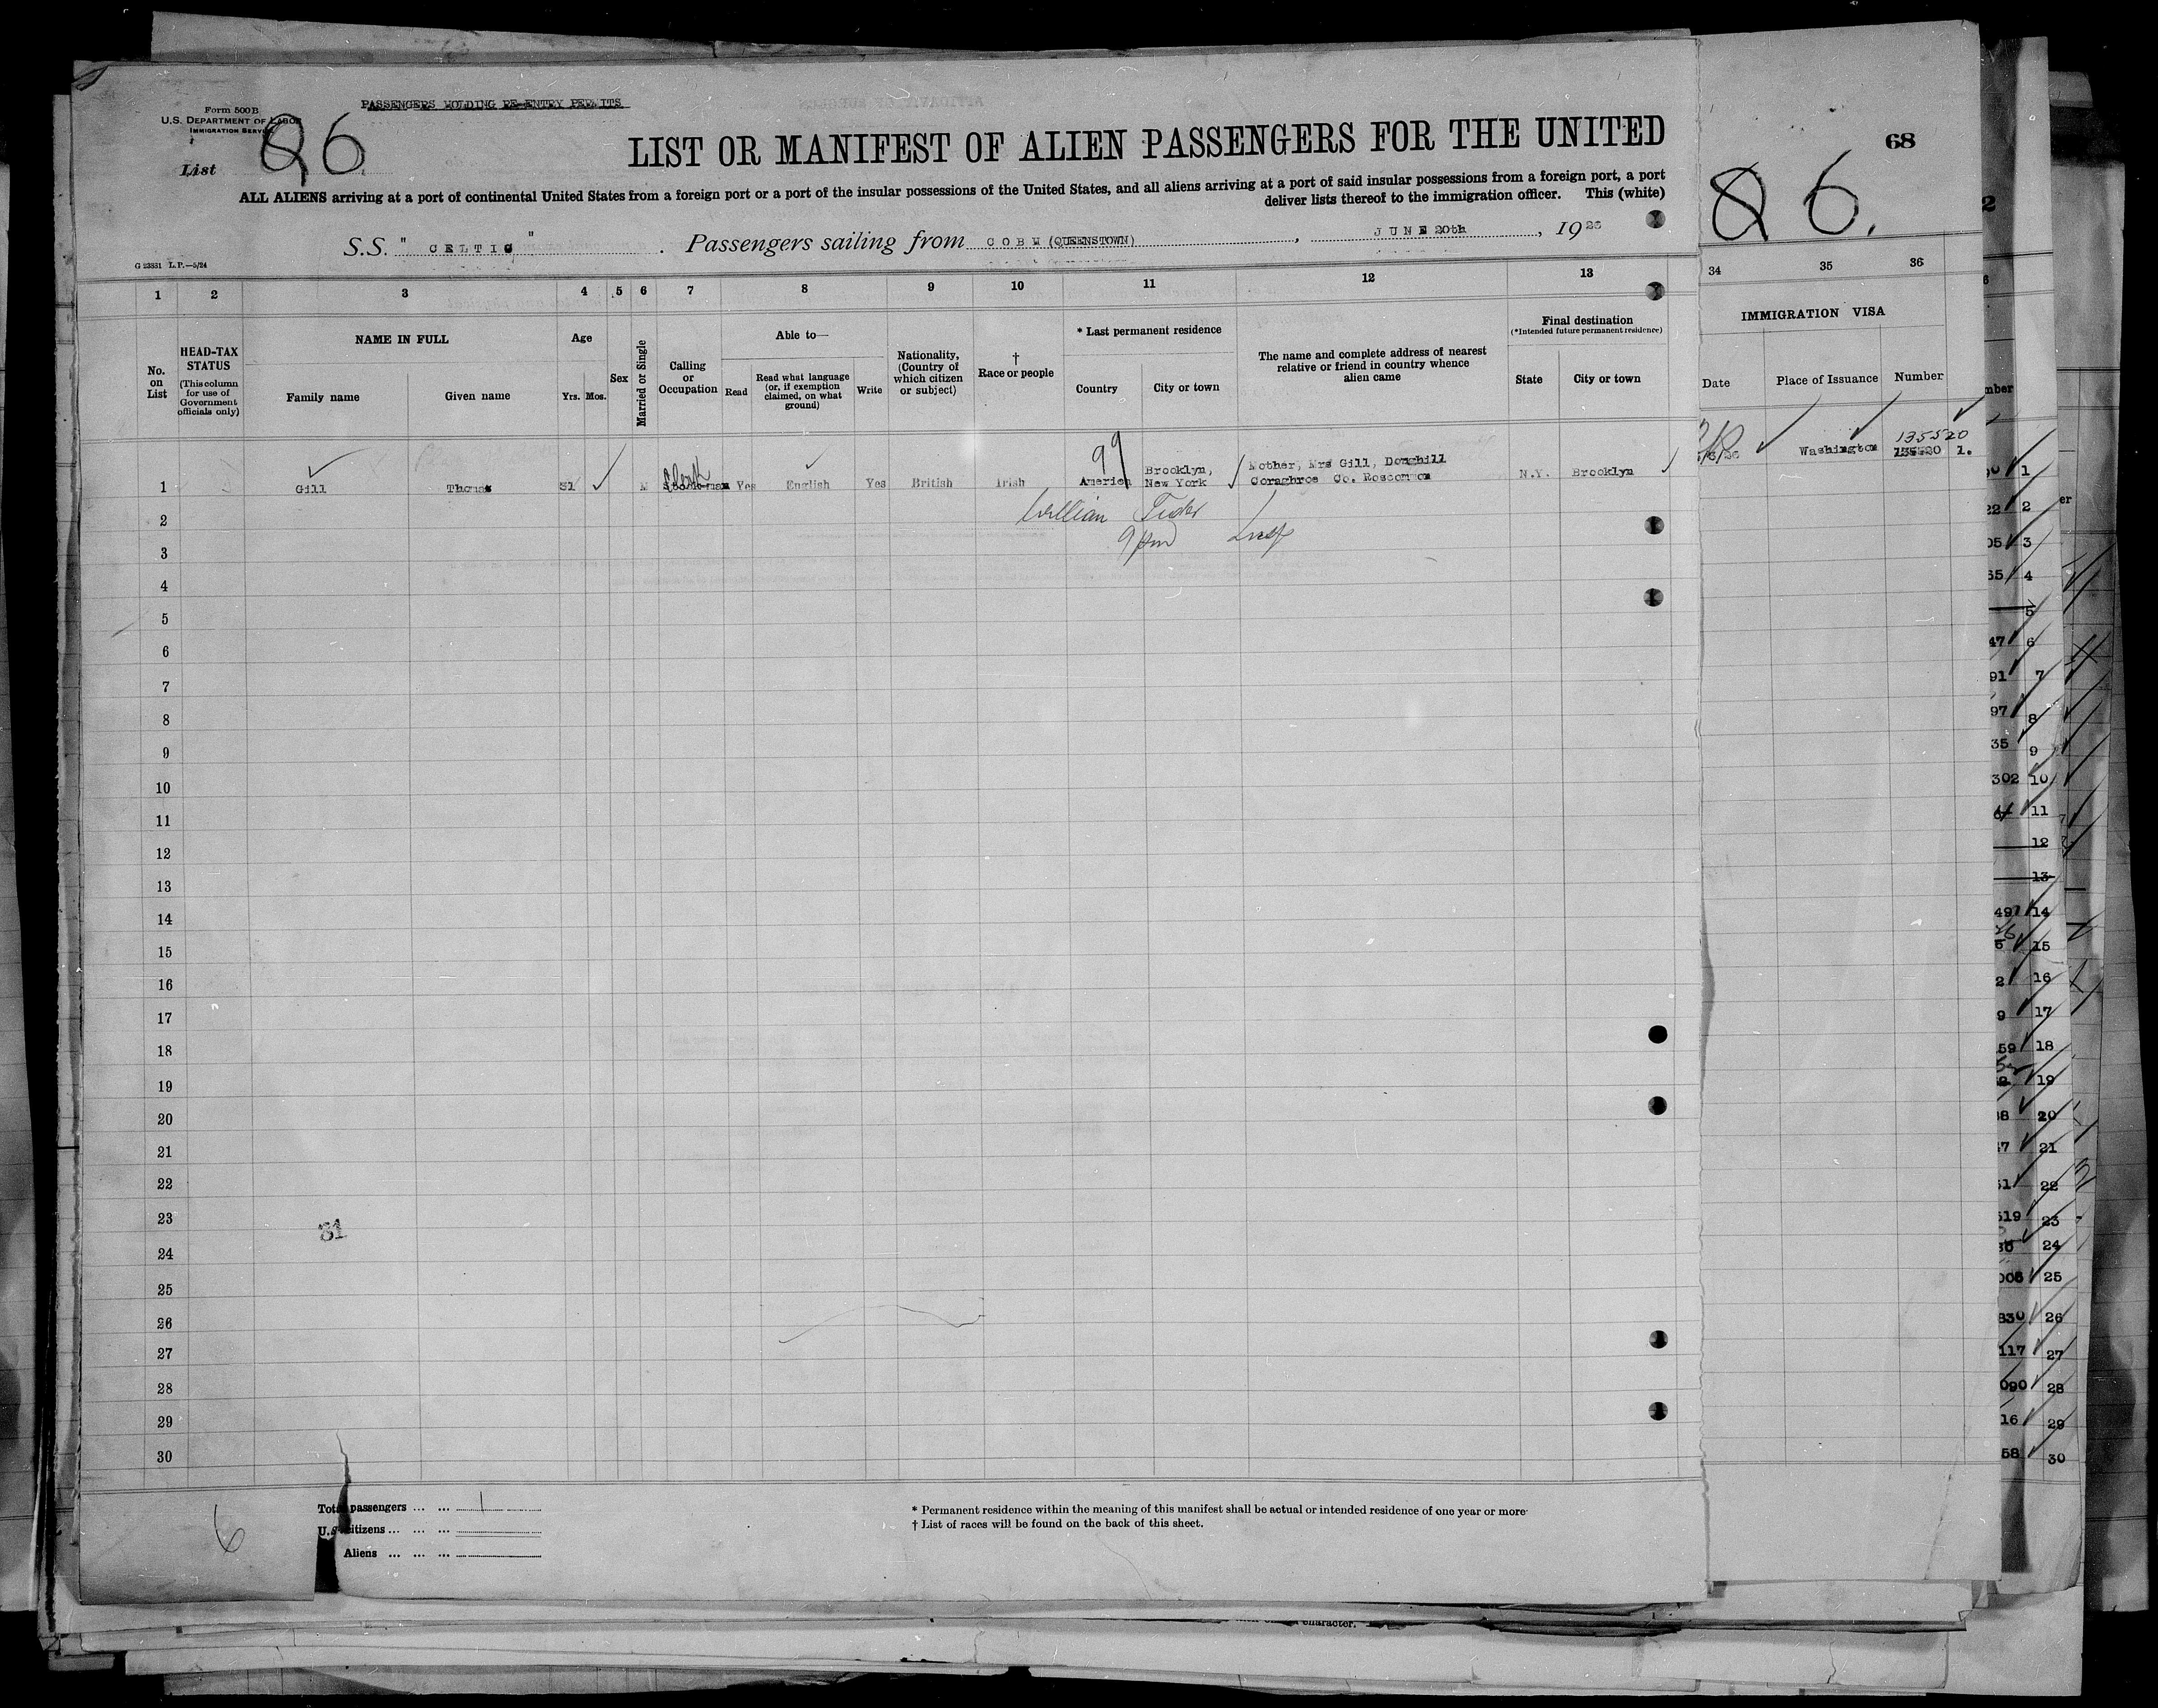 PASSENGERS HOLDING RE-ENTRY PERMITS
Form 500 B
U.S. DEPARTMENT OF LABOR
IMMIGRATION SERVICE
List 86.
LIST OR MANIFEST OF ALIEN PASSENGERS FOR THE UNITED
ALL ALIENS arriving at a port of continental United States from a foreign port or a port of the insular possessions of the United States, and all aliens arriving at a port of said insular possessions from a foreign port, a port
deliver lists thereof to the immigration officer. This (white)
S.S. "CELTIC". Passengers sailing from COBH (QUEENSTOWN), JUNE 20th, 1926
G 23831 L.P.—5/24
68
86.
1 2 3 4 5 6 7 8 9 10 11 12 13 34 35 36
No. on List
HEAD-TAX STATUS
(This column for use of Government officials only)
NAME IN FULL
Family name
Given name
Age
Yrs. Mos.
Sex
Married or Single
Calling or Occupation
Able to—
Read
Read what language (or, if exemption claimed, on what ground)
Write
Nationality, (Country of which citizen or subject)
† Race or people
* Last permanent residence
Country
City or town
The name and complete address of nearest relative or friend in country whence alien came
Final destination
(*Intended future permanent residence)
State
City or town
IMMIGRATION VISA
Date
Place of Issuance
Number
1 Gill Thomas 31 M Clerk Yes English Yes British Irish America Brooklyn, New York Mother, Mrs Gill, Doughill Coraghroe Co. Roscommon N.Y. Brooklyn Washington 135520 1.
99
135520
William Tudor
9 pm Insp
2
3
4
5
6
7
8
9
10
11
12
13
14
15
16
17
18
19
20
21
22
23
31
24
25
26
27
28
29
30
Total passengers ... ... 1
U.S. citizens ... ... ...
Aliens ... ... ...
6
* Permanent residence within the meaning of this manifest shall be actual or intended residence of one year or more.
† List of races will be found on the back of this sheet.
character.